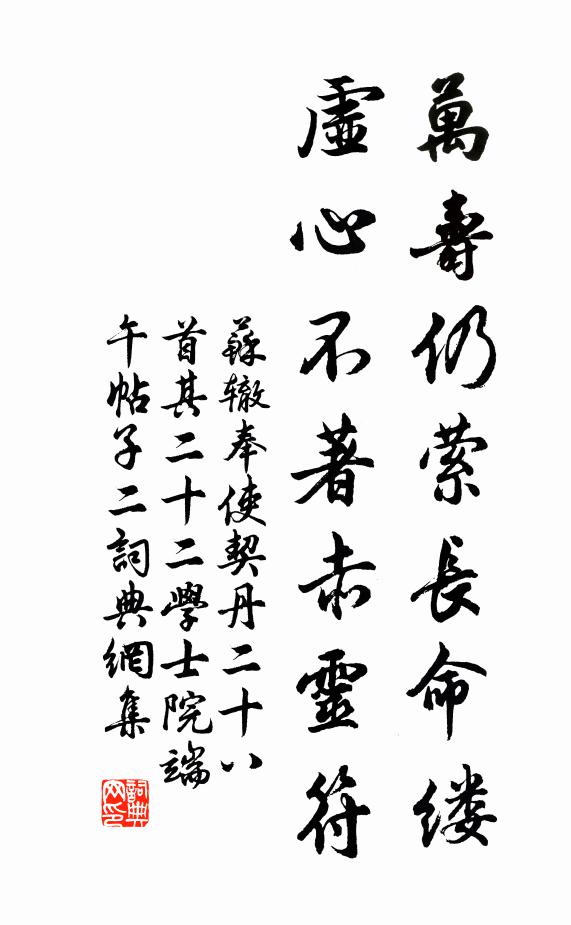 萬壽仍萦長命缕
虛心不著赤靈符
蘇辙奉使契丹二十八
首其二十二學士院端
午帖子二詞典網集
詞典網印